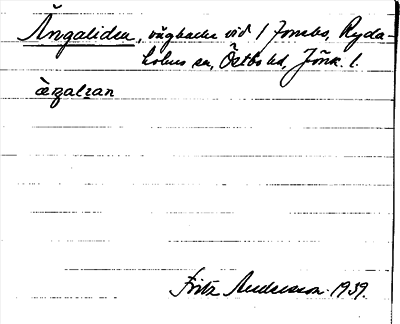 Ängaliden, vägbacke vid 1 Jonsbo, Ryda-
holms sn, Östbo hd, Jönk. l.
Fritz Andersson 1939.